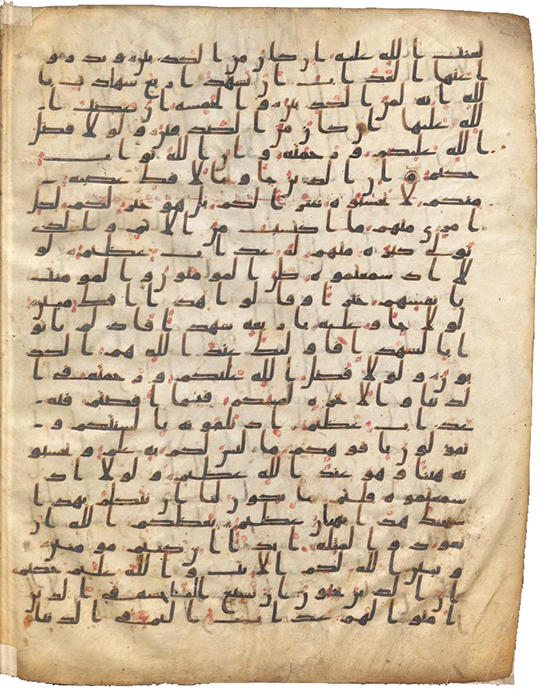 لعنت الله عليه ان كان من الكذبين ويدرو
ا عنها العذاب ان تشهد اربع شهادت با
لله انه لمن الكذبين والخمسة ان غضب ا
لله عليها ان كان من الصدقين ولولا فضل
الله عليكم ورحمته وان الله تواب
حكيم ان الذين جاو بالافك عصبة
منكم لا تحسبوه شرا لكم بل هو خير لكم لكل
امرى منهم ما اكتسب من الاثم والذى
تولى كبره منهم له عذاب عظيم لو
لا اذ سمعتموه ظن المومنون والمومنت
بانفسهم خيرا وقالوا هذا افك مبين
لولا جاو عليه باربعة شهدا فاذ لم ياتو
ا بالشهدا فاوليك عند الله هم الكذ
بون ولولا فضل الله عليكم ورحمته فى ا
لدنيا والاخرة لمسكم فيما افضتم فيه
عذاب عظيم اذ تلقونه بالسنتكم و
تقولون بافوهكم ما ليس لكم به علم وتحسبو
نه هينا وهو عند الله عظيم ولولا اذ
سمعتموه قلتم ما يكون لنا ان نتكلم بهذا
سبحنك هذا بهتان عظيم يعظكم الله ان
تعودوا لمثله ابدا ان كنتم مومنين
ويبين الله لكم الايت والله عليم حكيم
ان الذين يحبون ان تشيع الفاحشة فى الذين
امنوا لهم عذاب اليم فى الدنيا